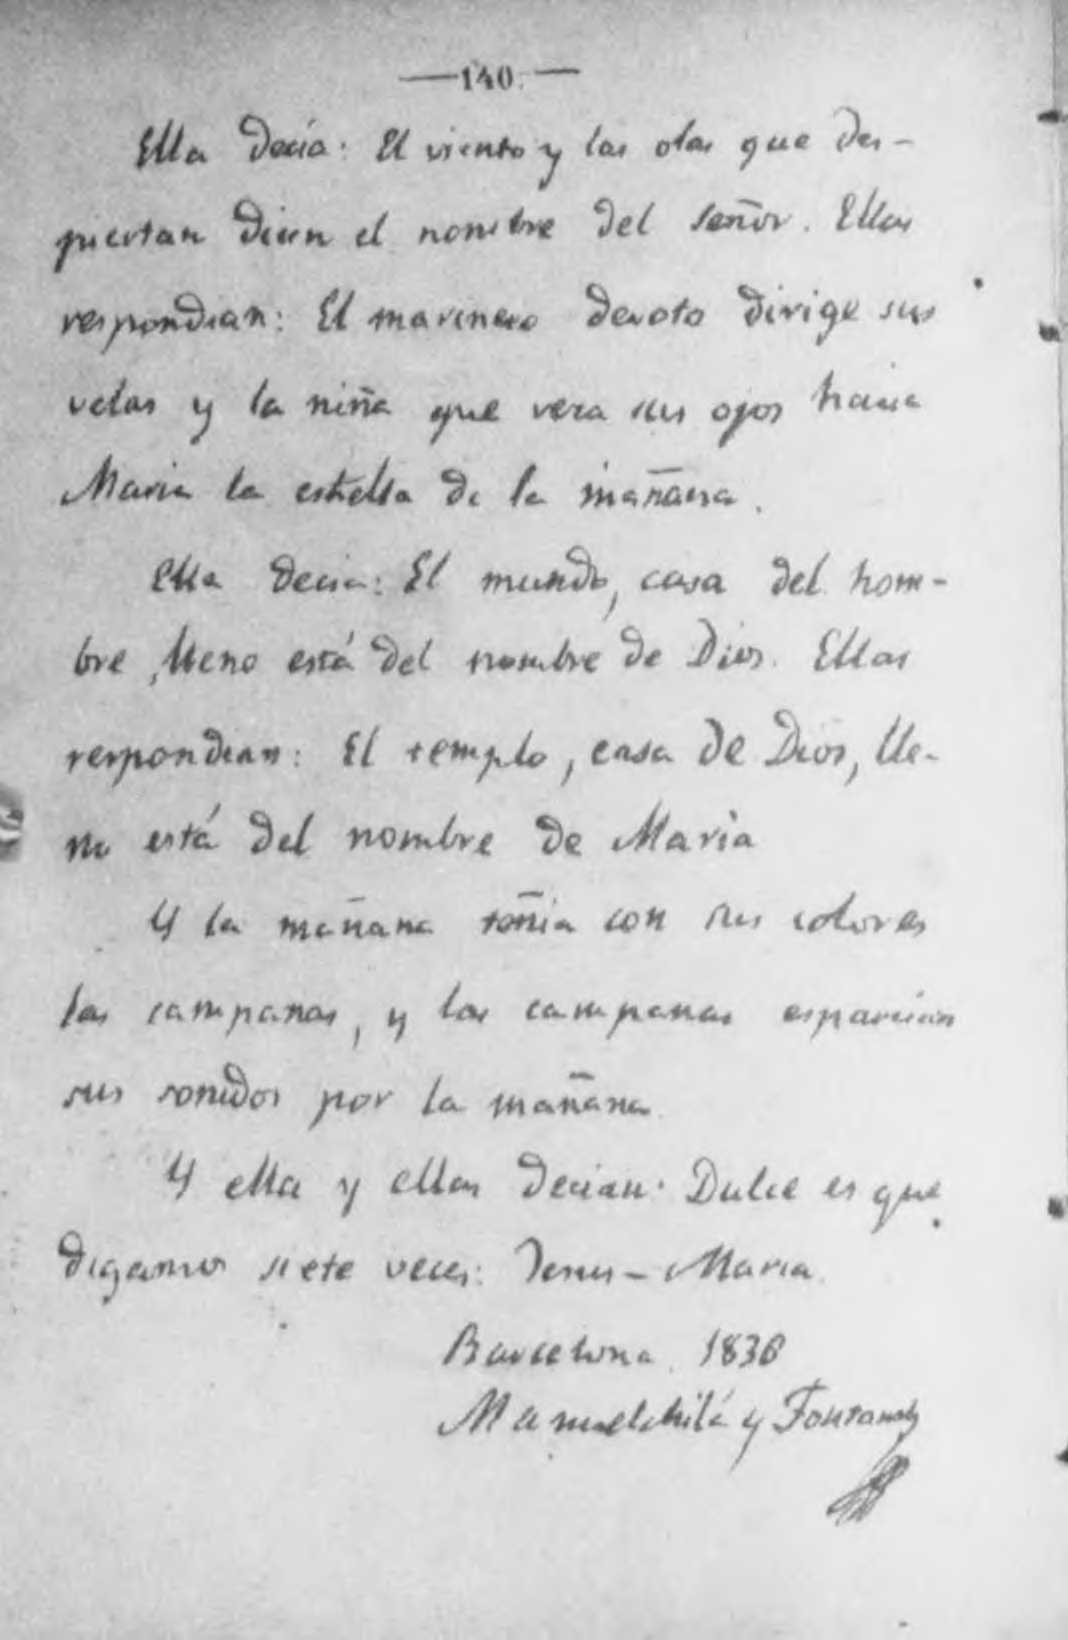 —140.—
Ella decía: El viento y las olas que des-
piertan dicen el nombre del Señor. Ellas
respondian: El marinero devoto dirige sus
velas y la niña que vera sus ojos hacia
Maria la estrella de la mañana.
Ella decia: El mundo, casa del hom-
bre, lleno está del nombre de Dios. Ellas
respondian: El templo, casa de Dios, lle-
no está del nombre de Maria
Y la mañana teñia con sus colores
las campanas, y las campanas esparcian
sus sonidos por la mañana.
Y ella y ellas decian: Dulce es que
digamos siete veces: Jesus-Maria.
Barcelona. 1836
Manuel Milá y Fontanals